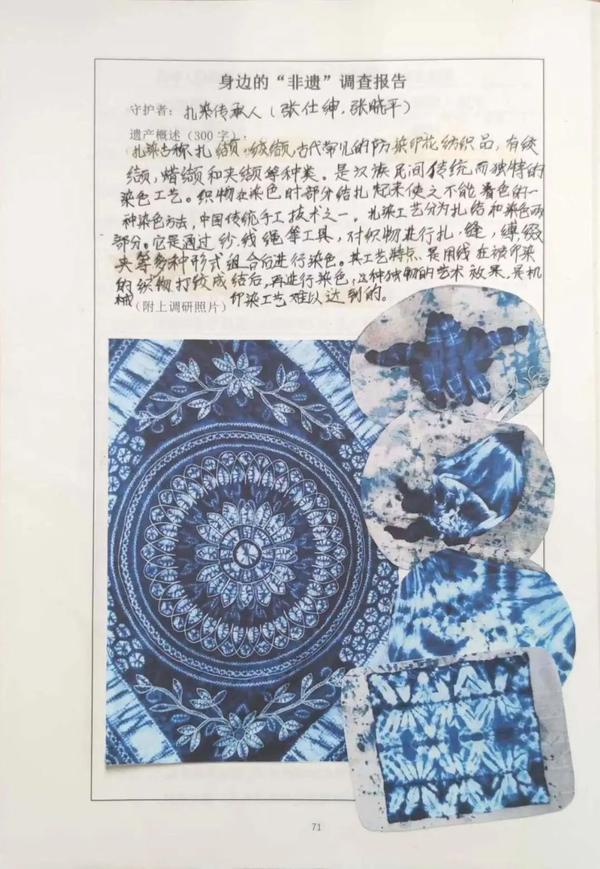 身边的“非遗”调查报告
守护者：扎染传承人（张仕绅，张晓平）
遗产概述（300字）：
扎染古称扎缬、绞缬，古代常见的防染印花纺织品，有绞
缬，蜡缬和夹缬等种类。是汉族民间传统而独特的
染色工艺。织物在染色时部分结扎起来使之不能着色的一
种染色方法，中国传统手工技术之一，扎染工艺分为扎结和染色两
部分。它是通过纱，线绳等工具，对织物进行扎，缝，缚缀
夹等多种形式组合后进行染色。其工艺特点是用线在被印染
的织物打绞成结后，再进行染色，这种独特的艺术效果，是机
械（附上调研照片）印染工艺难以达到的。
71